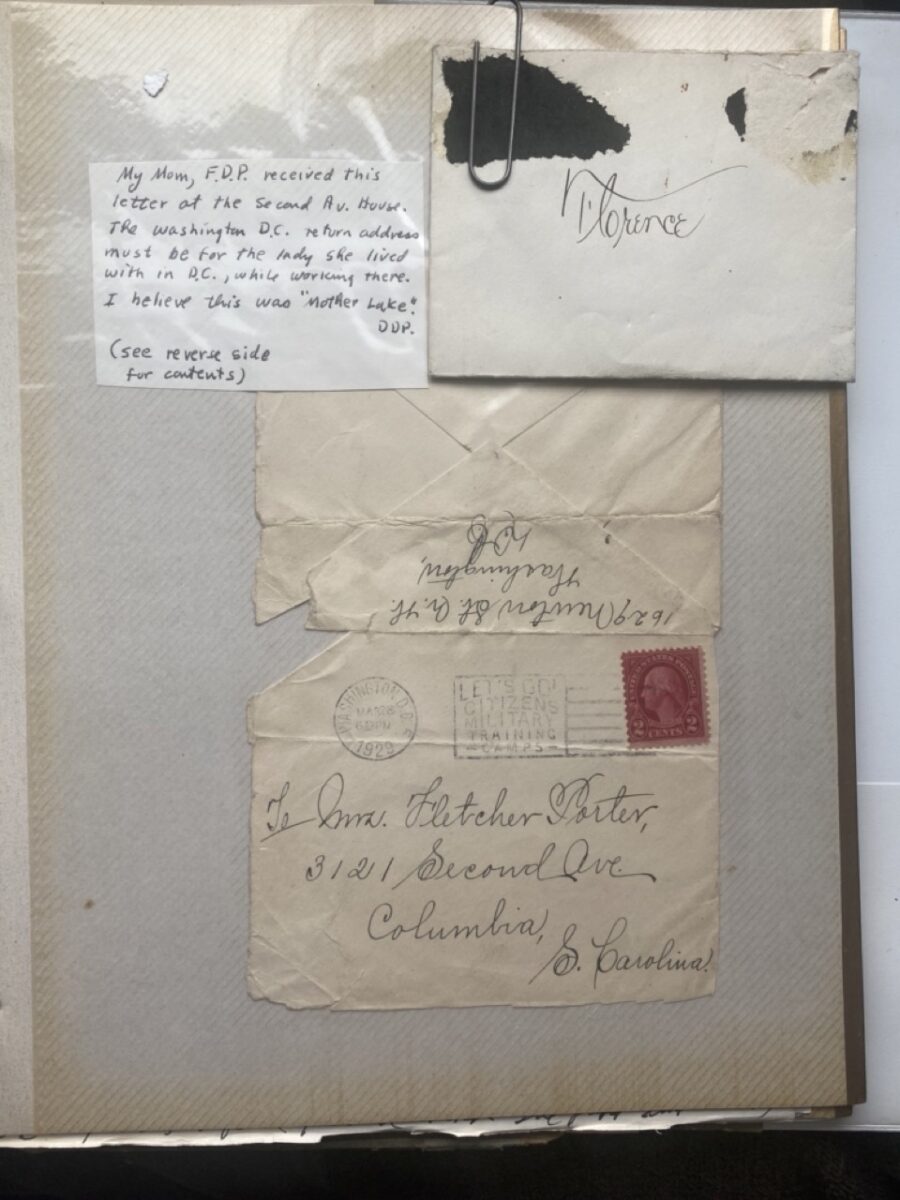 My Mom, F.D.P. received this
letter at the Second Av. House.
The Washington D.C. return address
must be for the lady she lived
with in D.C., while working there.
I believe this was "Mother Lake".
DDP.
(see reverse side
for contents)
Florence
1629 Newton St. N.W.
Washington,
D.C.
WASHINGTON, D.C.
MAR 28
1929
LET'S GO!
CITIZENS
MILITARY
TRAINING
CAMPS
UNITED STATES POSTAGE
2 CENTS 2
To Mrs. Fletcher Porter,
3121 Second Ave.
Columbia,
S. Carolina.